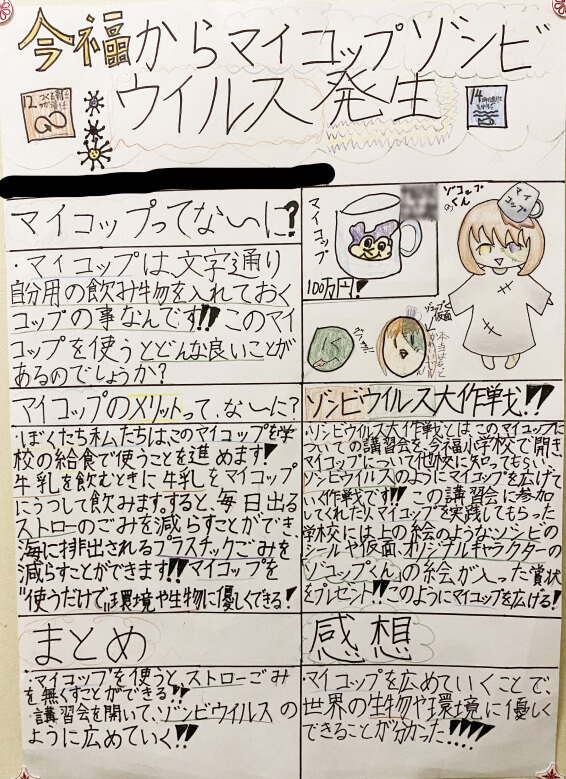 今福からマイコップゾンビ
ウイルス発生
12
つくる責任
つかう責任
14
マイコップってな～いに?
・マイコップは、文字通り
自分用の飲み物を入れておく
コップの事なんです!!このマイ
コップを使うとどんな良いことが
あるのでしょうか?
マイコップ
100万円!
ゾコップ
くん
マイ
コップ
ゾコップくん
仮面
マイコップのメリットって、な～いに?
・ぼくたち私たちは、このマイコップを学
校の給食で使うことを進めます!
牛乳を飲むときに牛乳をマイコップ
にうつして飲みます。すると、毎日出る
ストローのごみを減らすことができ、
海に排出されるプラスチックごみを
減らすことができます!!マイコップを
"使うだけで"環境や生物に優しくできる!
ゾンビウイルス大作戦!!
・ゾンビウイルス大作戦とはこのマイコップに
ついての講習会を今福小学校で開き
マイコップについて他校に知ってもらい、
ゾンビウイルスのようにマイコップを広げて
いく作戦です!!この講習会に参加
してくれたり、マイコップを実践してもらった
学校には上の絵のようなゾンビの
シールや仮面、オリジナルキャラクターの
「ゾコップくん」の絵が入った賞状
をプレゼント!!このようにマイコップを広げる!
まとめ
・マイコップを使うと、ストローごみ
を無くすことができる!!
・講習会を開いて、ゾンビウイルスの
ように広めていく!!
感想
・マイコップを広めていくことで、
世界の生物や環境に優しく
できることが分かった!!!!